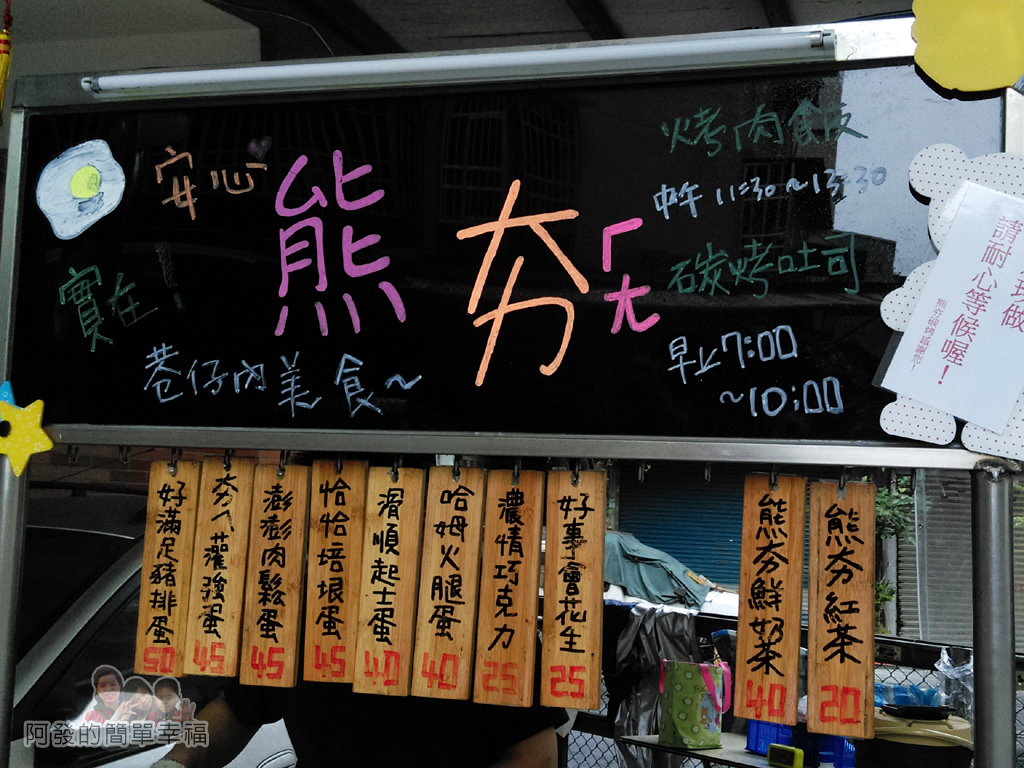 安心
熊夯ㄏㄤ
實在!
巷仔內美食~
烤肉飯
中午 11:30~13:30
碳烤吐司
早上7:00
~10:00
現做
請耐心等候喔!
好滿足豬排蛋 50
夯人灌強蛋 45
澎澎肉鬆蛋 45
恰恰培根蛋 45
滑順起士蛋 40
哈姆火腿蛋 40
濃情巧克力 25
好事會花生 25
熊夯鮮奶茶 40
熊夯紅茶 20
阿發的簡單幸福